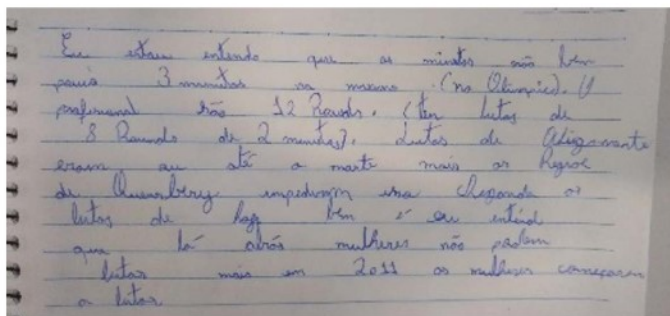 Eu estava entendo que os minutos não bem
pauis 3 minutos no maximo (no Olimpico). O
profisional são 12 Rounds. (ten lutas de
8 Rounds de 2 minutos). Lutas de
eram au até a morte mais as Regras
de Queensbery impediram essa chegando as
lutas de hoje bem é eu entend
que lá atrás mulheres não podem
lutar mais em 2011 as mulheres começaram
a lutar